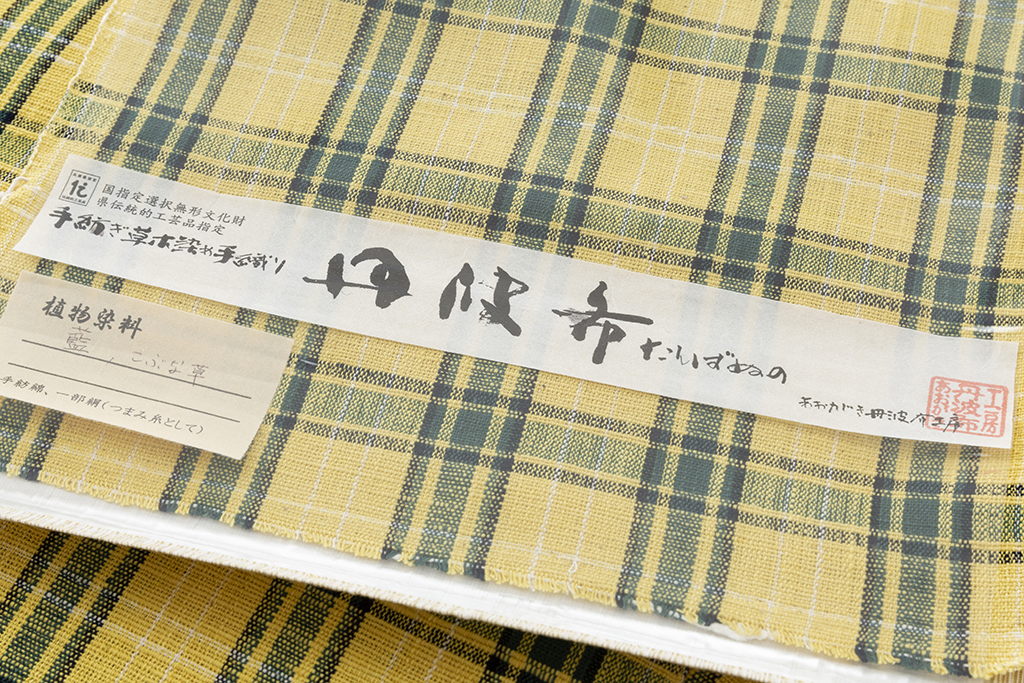 伝
国指定選択無形文化財
県伝統的工芸品指定
手紡ぎ草木染め手織り
丹波布 たんばぬの
あおがき丹波布工房
植物染料
藍、こぶな草
手紗綿、一部絹(つまみ糸として)